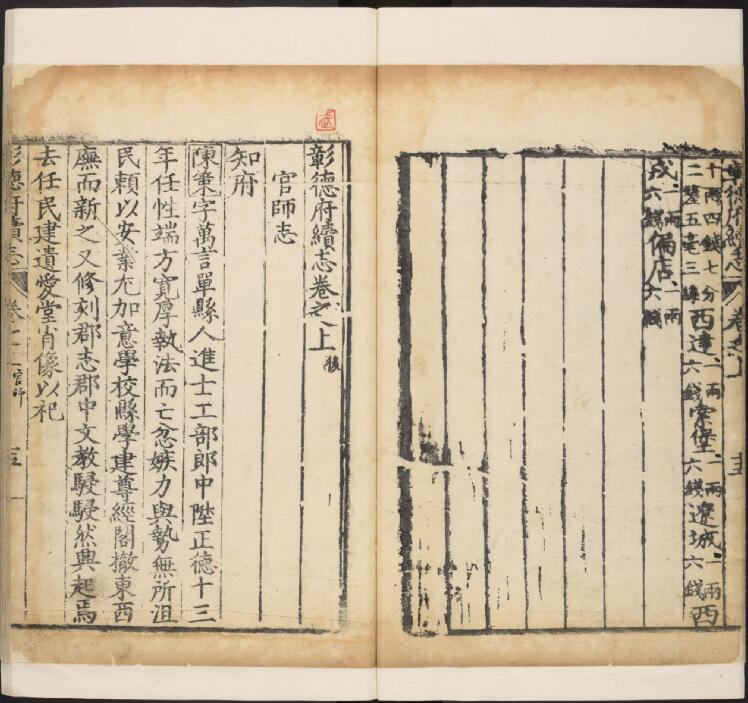 十兩四錢七分
二釐五毫三絲西達一兩六錢常堡一兩六錢遼城一兩六錢西
戍一兩六錢偏店一兩六錢
彰德府續志卷之上後
官師志
知府
陳策字萬言單縣人進士工部郎中陞正德十三
年任性端方寬厚執法而亡忿嫉力與勢無所沮
民賴以安業尤加意學校縣學建尊經閣撤東西
廡而新之又修刻郡志郡中文教駸駸然興起焉
去任民建遺愛堂肖像以祀
彰德府續志 卷之上 官師